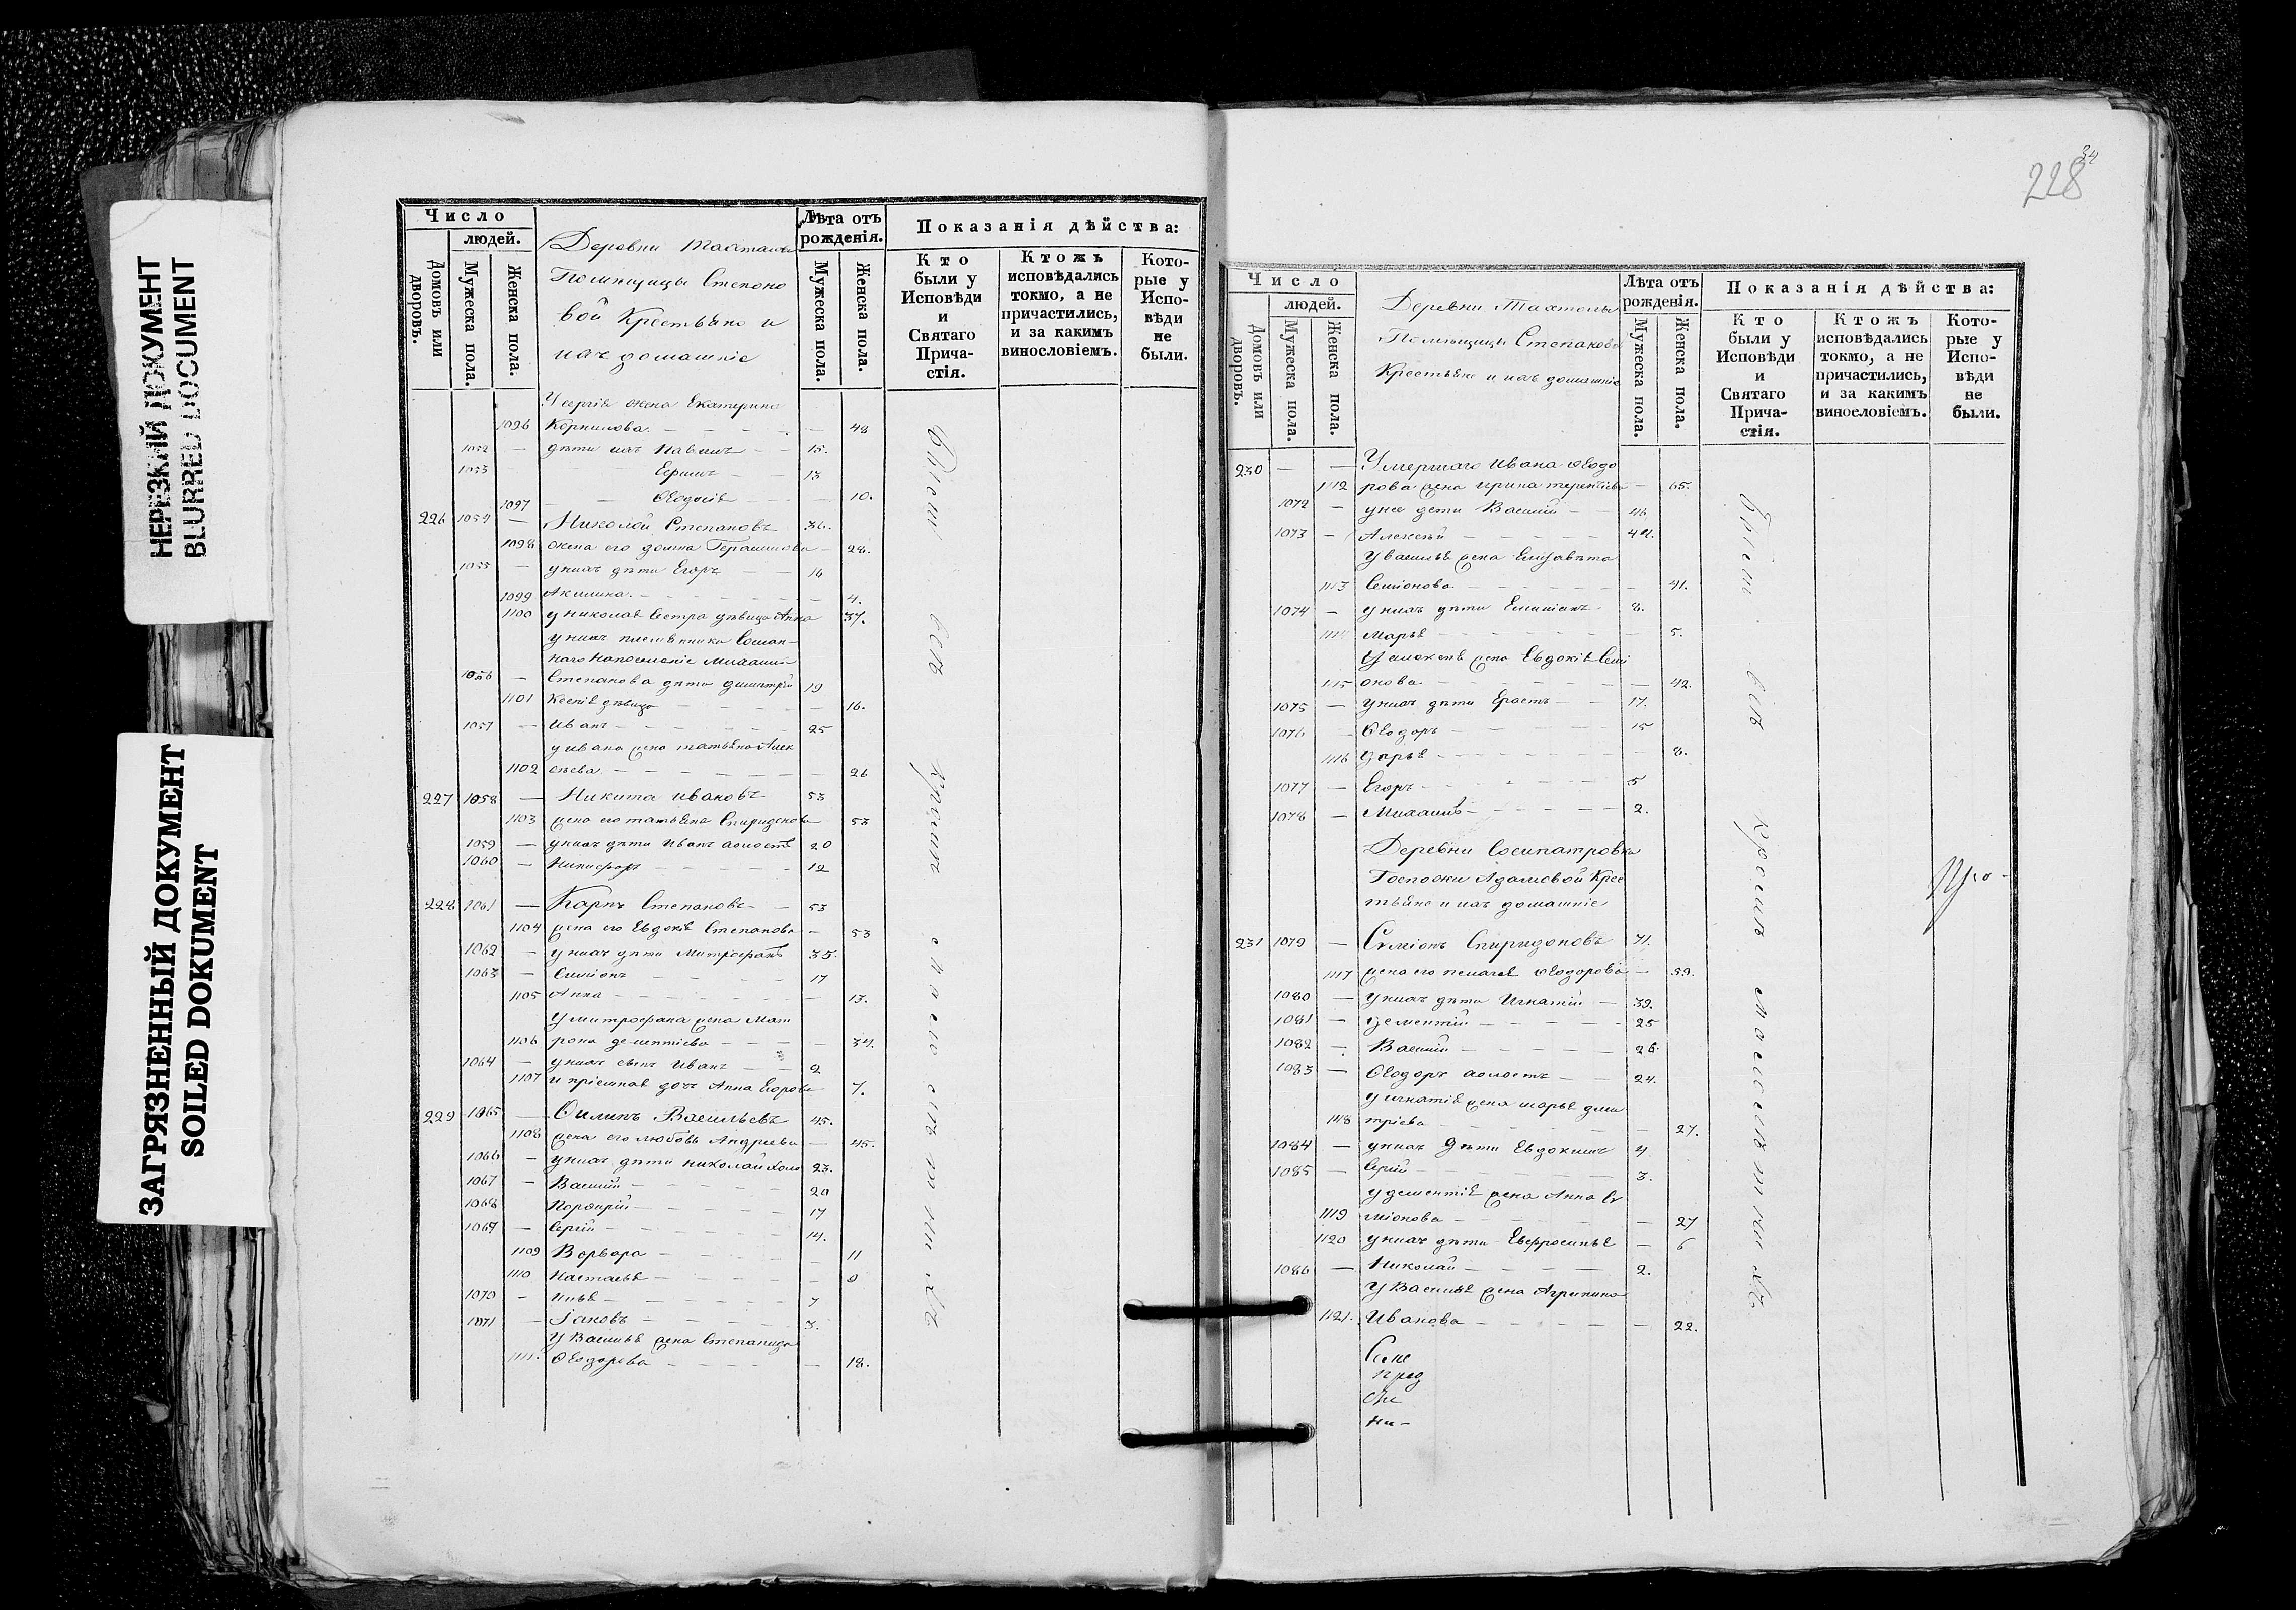 НЕРЕЗКИЙ ДОКУМЕНТ
BLURRED DOCUMENT
ЗАГРЯЗНЕННЫЙ ДОКУМЕНТ
SOILED DOKUMENT
Число
людей.
Домовъ или дворовъ.
Мужеска пола.
Женска пола.
Деревни
Помещицы Степано
вой Крестьяне и
ихъ домашніе
Лѣта отъ рожденія.
Мужеска пола.
Женска пола.
Показанія дѣйства:
Кто были у Исповѣди и Святаго Прича- стія.
Ктожъ исповѣдались токмо, а не причастились, и за какимъ винословіемъ.
Кото- рые у Испо- вѣди не были.
У Сергія жена Екатерина
1096 Корнилова 48
1052 — дѣти ихъ Павелъ 15.
1053 Ефимъ 13
1097 Ѳеодосія 10.
226 1054 — Николай Степановъ 36.
1098 жена его домна Герасимова 28.
1055 — у нихъ дѣти Егоръ 16
1099 Акилина 4.
1100 у николая сестра дѣвица Анна 37.
у нихъ племянники
Михаила
1056 — Степанова дѣти димитрій 19
1101 Ксенія дѣвица 16.
1057 — Иванъ 25
у ивана жена татьяна Алек
1102 сѣева 26
227 1058 — Никита ивановъ 53
1103 жена его татьяна Спиридонова 53
1059 — у нихъ дѣти Иванъ холостъ 20
1060 — Никифоръ 12
228 1061 — Карпъ Степановъ 53
1104 жена его Евдокія Степанова 53
1062 — у нихъ дѣти Митрофанъ 35.
1063 — Симіонъ 17
1105 Анна 13.
У митрофана жена Мат
1106 рона дементіева 34.
1064 — у нихъ сынъ Иванъ 2
1107 и пріемная дочь Анна Егорова 7.
229 1065 — Филипъ Васильевъ 45.
1108 жена его любовь Андреева 45.
1066 — у нихъ дѣти николай холо 23.
1067 — Василій 20
1068 Порфирій 17
1069 — Сергій 14.
1109 Варвара 11
1110 Настасья 9
1070 — Илья 7
1071 — Іаковъ 3.
У Василья жена Степанида
1111. Ѳеодорова 18.
Были вси
34
228
Число
людей.
Домовъ или дворовъ.
Мужеска пола.
Женска пола.
Деревни
Помѣщицы Степановой
Крестьяне и ихъ домашніе
Лѣта отъ рожденія.
Мужеска пола.
Женска пола.
Показанія дѣйства:
Кто были у Исповѣди и Святаго Прича- стія.
Ктожъ исповѣдались токмо, а не причастились, и за какимъ винословіемъ.
Кото- рые у Испо- вѣди не были.
230 — — Умершаго Ивана Ѳеодо
1112 рова жена ирина терентіева — 65.
1072 — у нее дети Василій 46
1073 — Алексѣй 44.
У василья жена Елизавѣта
1113 Симіонова 41.
1074 — у нихъ дѣти Симіонъ 8.
1114 Марья 5.
У алексѣя жена Евдокія Сим
1115 іонова 42.
1075 — у нихъ дѣти Ерастъ 17.
1076 — Ѳеодоръ 15
1116 дарья 8.
1077 — Егоръ 5
1078 — Михаилъ 2.
Деревни Сосипатровка
Госпожи Адамовой Крес
тьяне и ихъ домашніе
231 1079 — Симіонъ Спиридоновъ 71.
1117 жена его пелагея Ѳеодорова — 59.
1080 — у нихъ дѣти Игнатій 39.
1081 — дементій 25
1082 — Василій 26.
1083 — Ѳеодоръ холостъ 24.
у игнатія жена марья дми
1118 тріева 27.
1084 — у нихъ дѣти Евдокимъ 4
1085 — Сергій 3.
у дементія жена Анна Си
1119 міонова 27
1120 у нихъ дѣти Евфросинья — 6
1086 — Николай 2.
У Василья жена Агрипина
1121. Иванова 22.